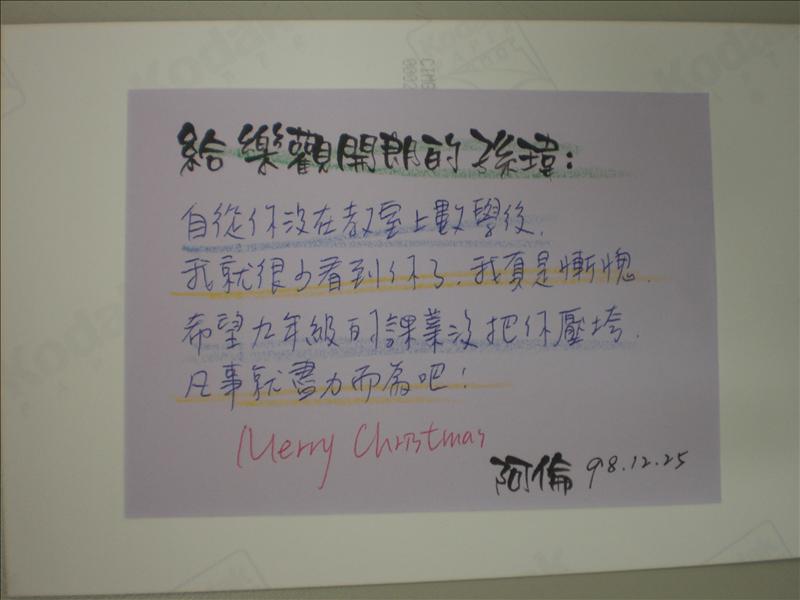 給樂觀開朗的孫瑋：
自從你沒在教室上數學後，
我就很少看到你了，我真是慚愧．
希望九年級的課業沒把你壓垮．
凡事就盡力而為吧！
Merry Christmas
阿倫 98.12.25
Kodak